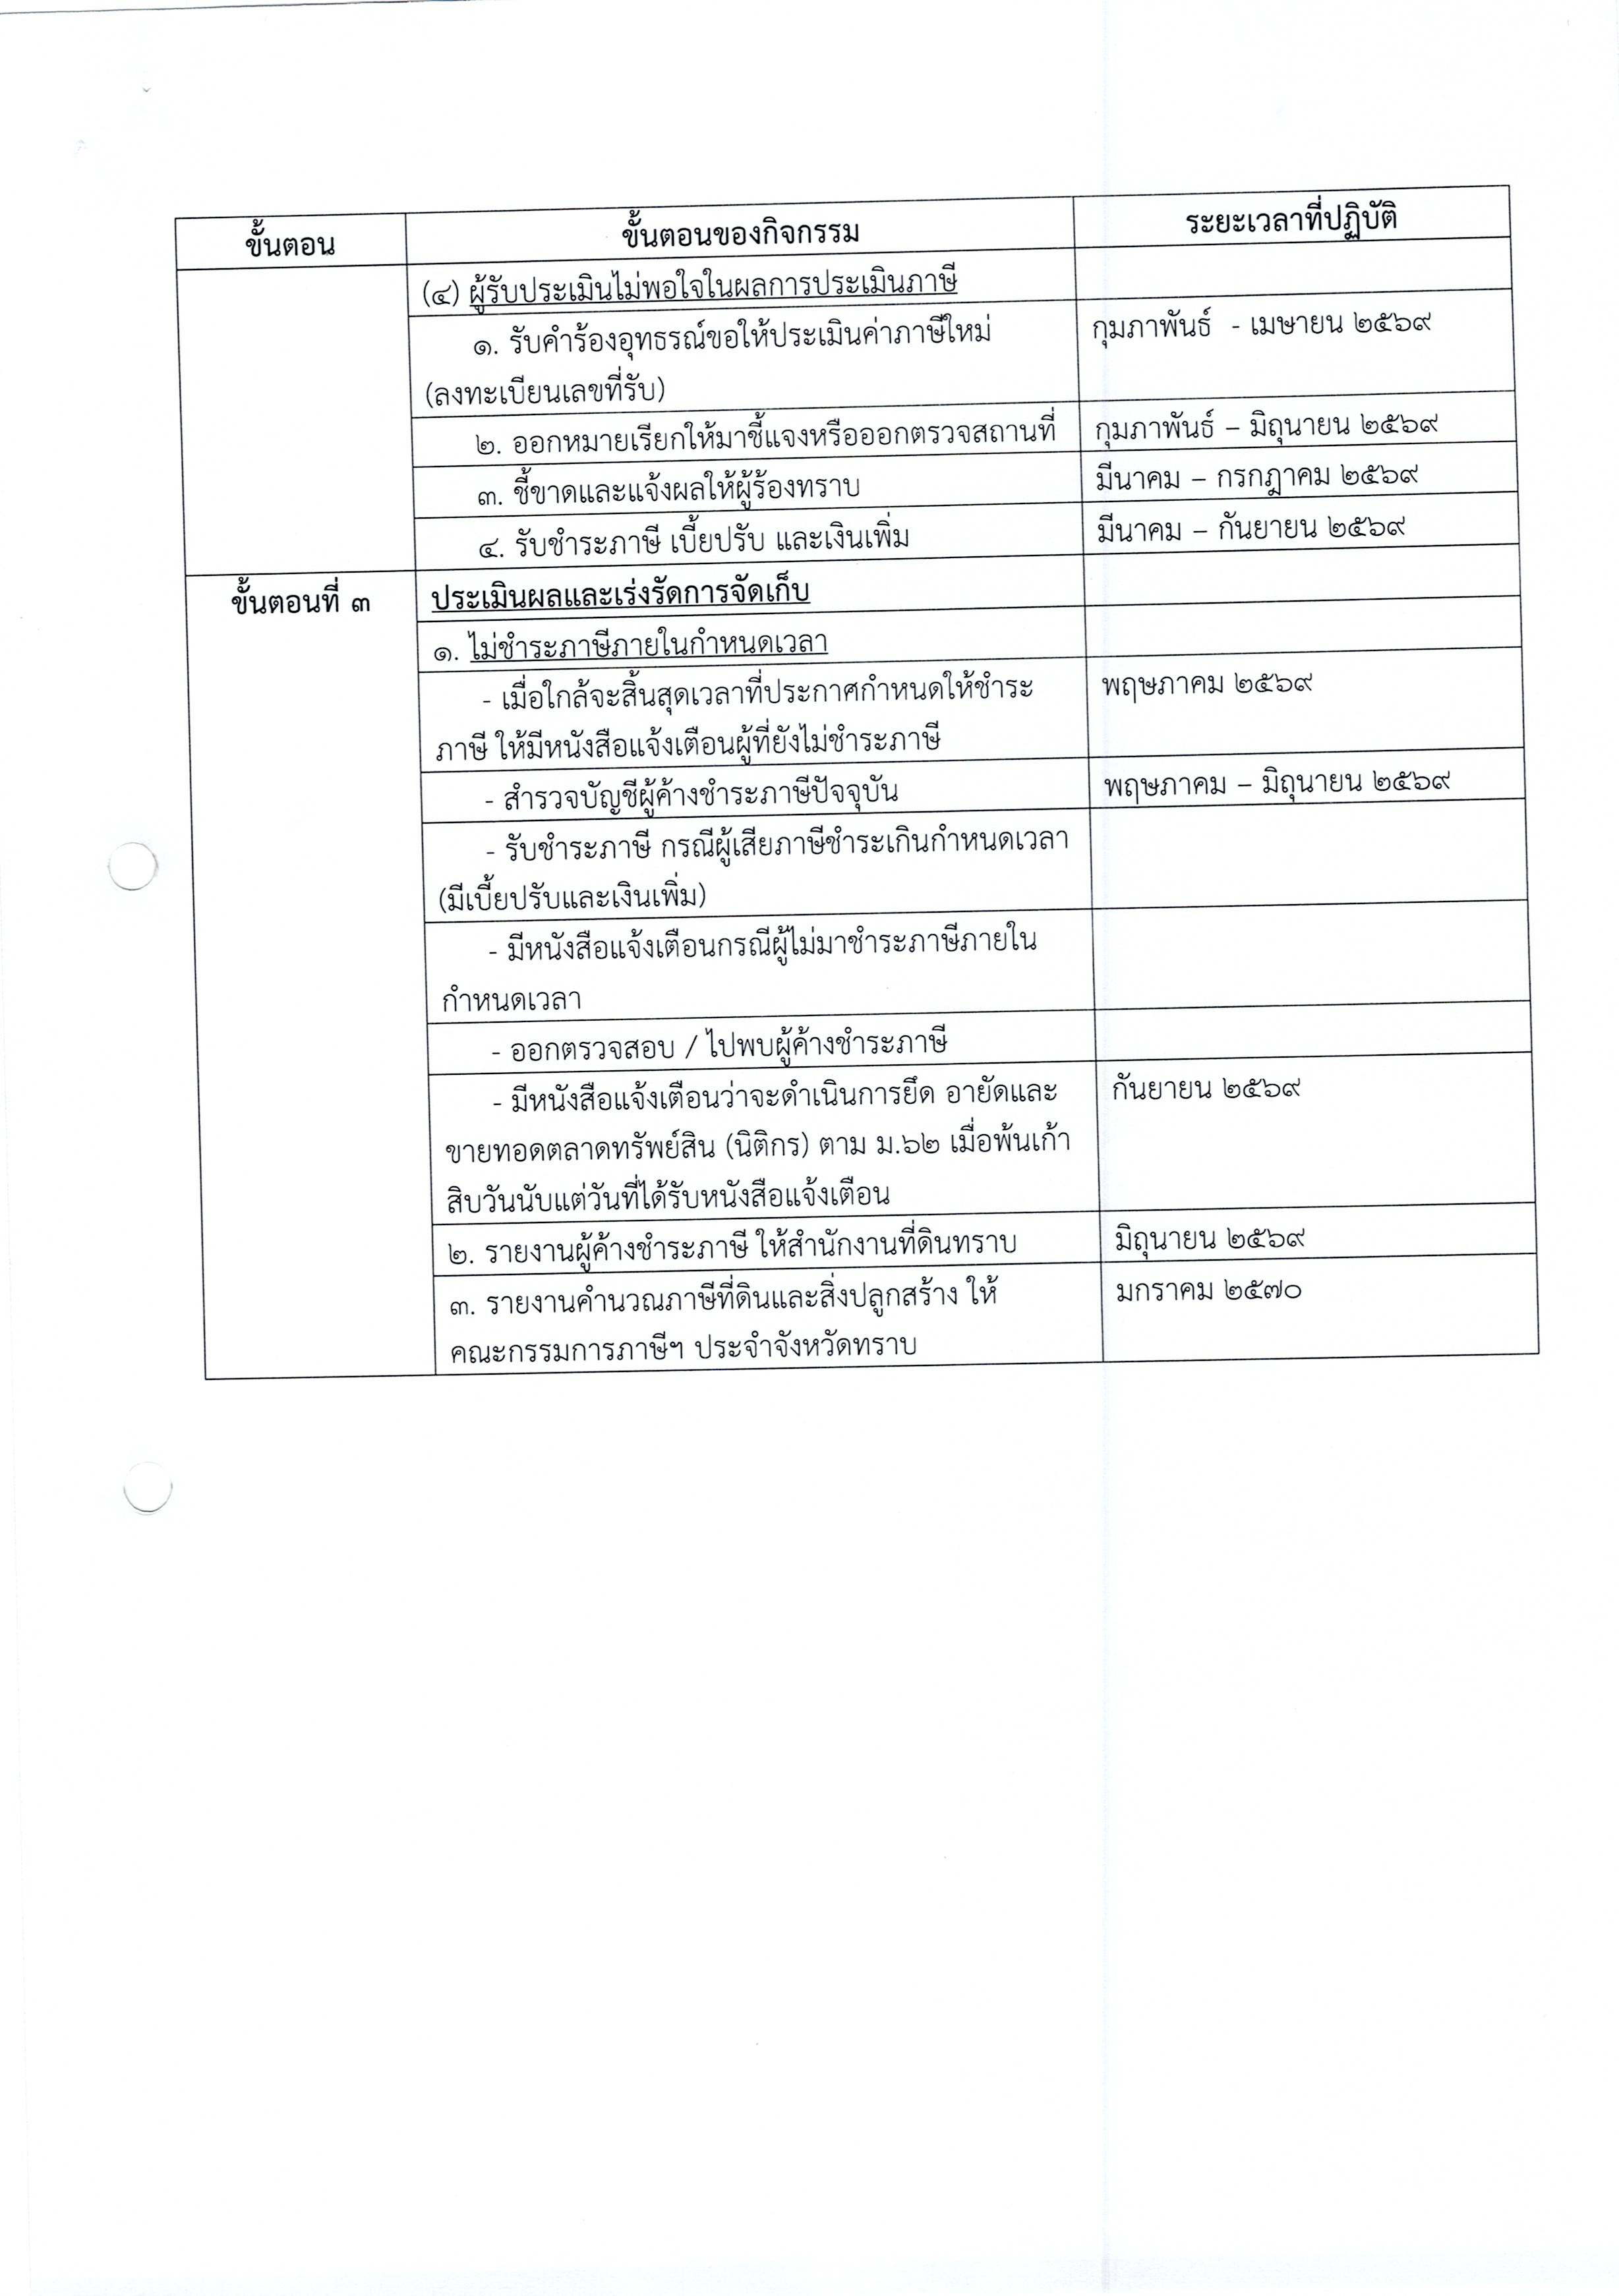 ขั้นตอน ขั้นตอนของกิจกรรม ระยะเวลาที่ปฏิบัติ
(๔) ผู้รับประเมินไม่พอใจในผลการประเมินภาษี
๑. รับคำร้องอุทธรณ์ขอให้ประเมินค่าภาษีใหม่ กุมภาพันธ์ - เมษายน ๒๕๖๙
(ลงทะเบียนเลขที่รับ)
๒. ออกหมายเรียกให้มาชี้แจงหรือออกตรวจสถานที่ กุมภาพันธ์ – มิถุนายน ๒๕๖๙
๓. ชี้ขาดและแจ้งผลให้ผู้ร้องทราบ มีนาคม – กรกฎาคม ๒๕๖๙
๔. รับชำระภาษี เบี้ยปรับ และเงินเพิ่ม มีนาคม – กันยายน ๒๕๖๙
ขั้นตอนที่ ๓ ประเมินผลและเร่งรัดการจัดเก็บ
๑. ไม่ชำระภาษีภายในกำหนดเวลา
- เมื่อใกล้จะสิ้นสุดเวลาที่ประกาศกำหนดให้ชำระ พฤษภาคม ๒๕๖๙
ภาษี ให้มีหนังสือแจ้งเตือนผู้ที่ยังไม่ชำระภาษี
- สำรวจบัญชีผู้ค้างชำระภาษีปัจจุบัน พฤษภาคม – มิถุนายน ๒๕๖๙
- รับชำระภาษี กรณีผู้เสียภาษีชำระเกินกำหนดเวลา
(มีเบี้ยปรับและเงินเพิ่ม)
- มีหนังสือแจ้งเตือนกรณีผู้ไม่มาชำระภาษีภายใน
กำหนดเวลา
- ออกตรวจสอบ / ไปพบผู้ค้างชำระภาษี
- มีหนังสือแจ้งเตือนว่าจะดำเนินการยึด อายัดและ กันยายน ๒๕๖๙
ขายทอดตลาดทรัพย์สิน (นิติกร) ตาม ม.๖๒ เมื่อพ้นเก้า
สิบวันนับแต่วันที่ได้รับหนังสือแจ้งเตือน
๒. รายงานผู้ค้างชำระภาษี ให้สำนักงานที่ดินทราบ มิถุนายน ๒๕๖๙
๓. รายงานคำนวณภาษีที่ดินและสิ่งปลูกสร้าง ให้ มกราคม ๒๕๗๐
คณะกรรมการภาษีฯ ประจำจังหวัดทราบ